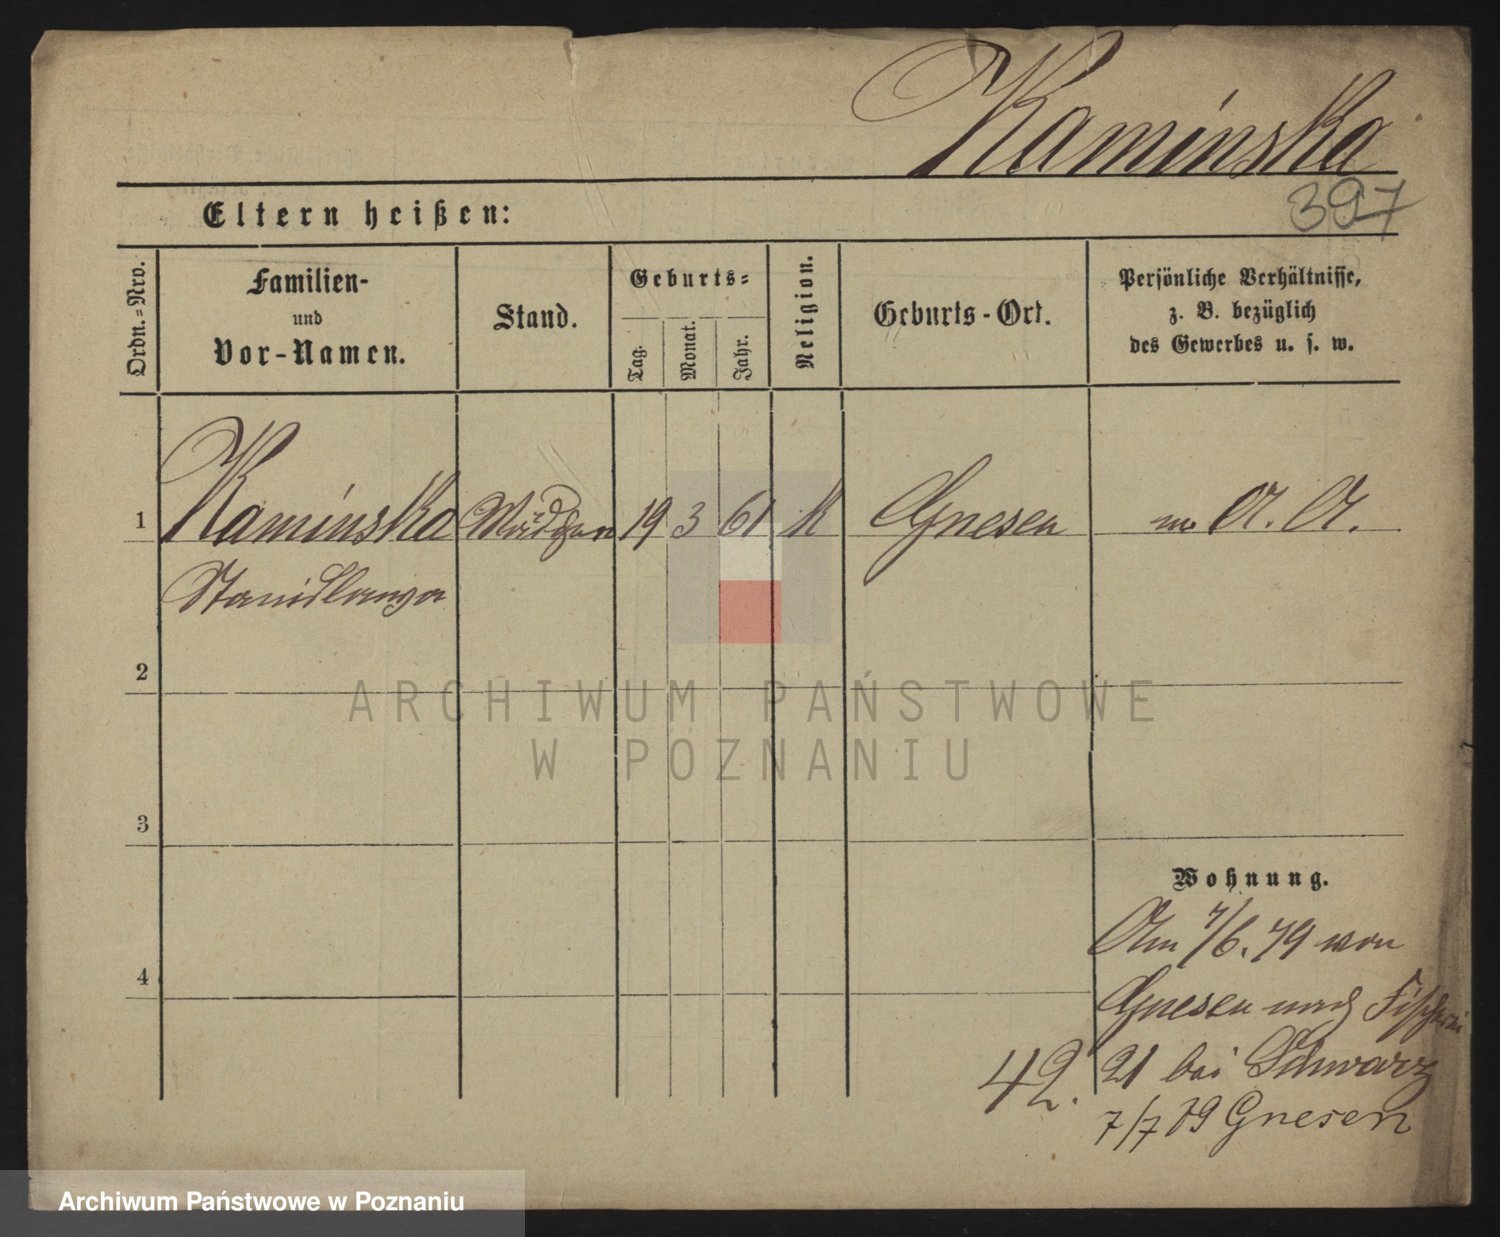 Kaminska
397
Eltern heißen:
Ordn.-Nro.
Familien-
und
Vor-Namen.
Stand.
Geburts-
Tag.
Monat.
Jahr.
Religion.
Geburts-Ort.
Persönliche Verhältnisse,
z. B. bezüglich
des Gewerbes u. s. w.
1 Kaminska Mädchen 19 3 61 K Gnesen A. A.
Stanislawa
2
3
4
Wohnung.
Am 7/6. 79 von
Gnesen nach Fischerei
42. 21 bei Schwarz
7/7 79 Gnesen
ARCHIWUM PAŃSTWOWE
W POZNANIU
Archiwum Państwowe w Poznaniu